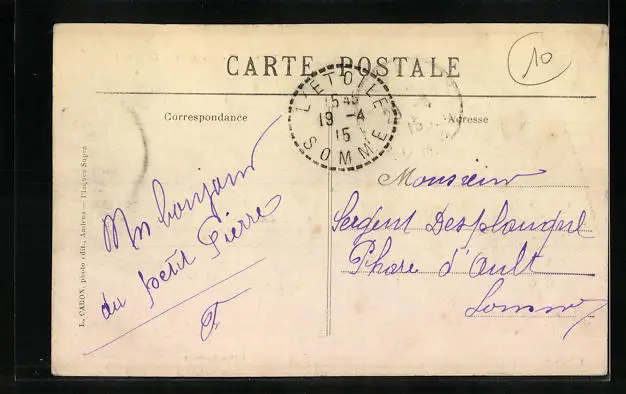 CARTE POSTALE
10
L'ETOILE
15 45
19 -4
15
SOMME
Correspondance
Adresse
Un bonjour
du petit Pierre
Monsieur
Sergent Desplanque
Phare d'Ault
Somme
L. CARON, photo édit., Amiens — Plaques Supra